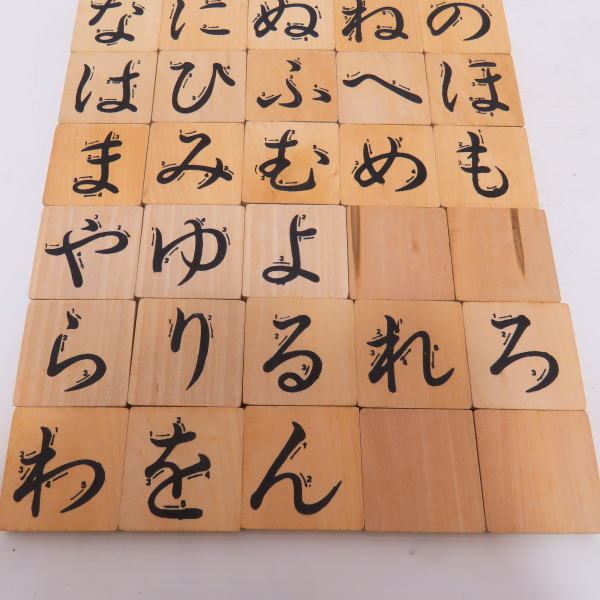 な に ぬ ね の
は ひ ふ へ ほ
ま み む め も
や ゆ よ
ら り る れ ろ
わ を ん